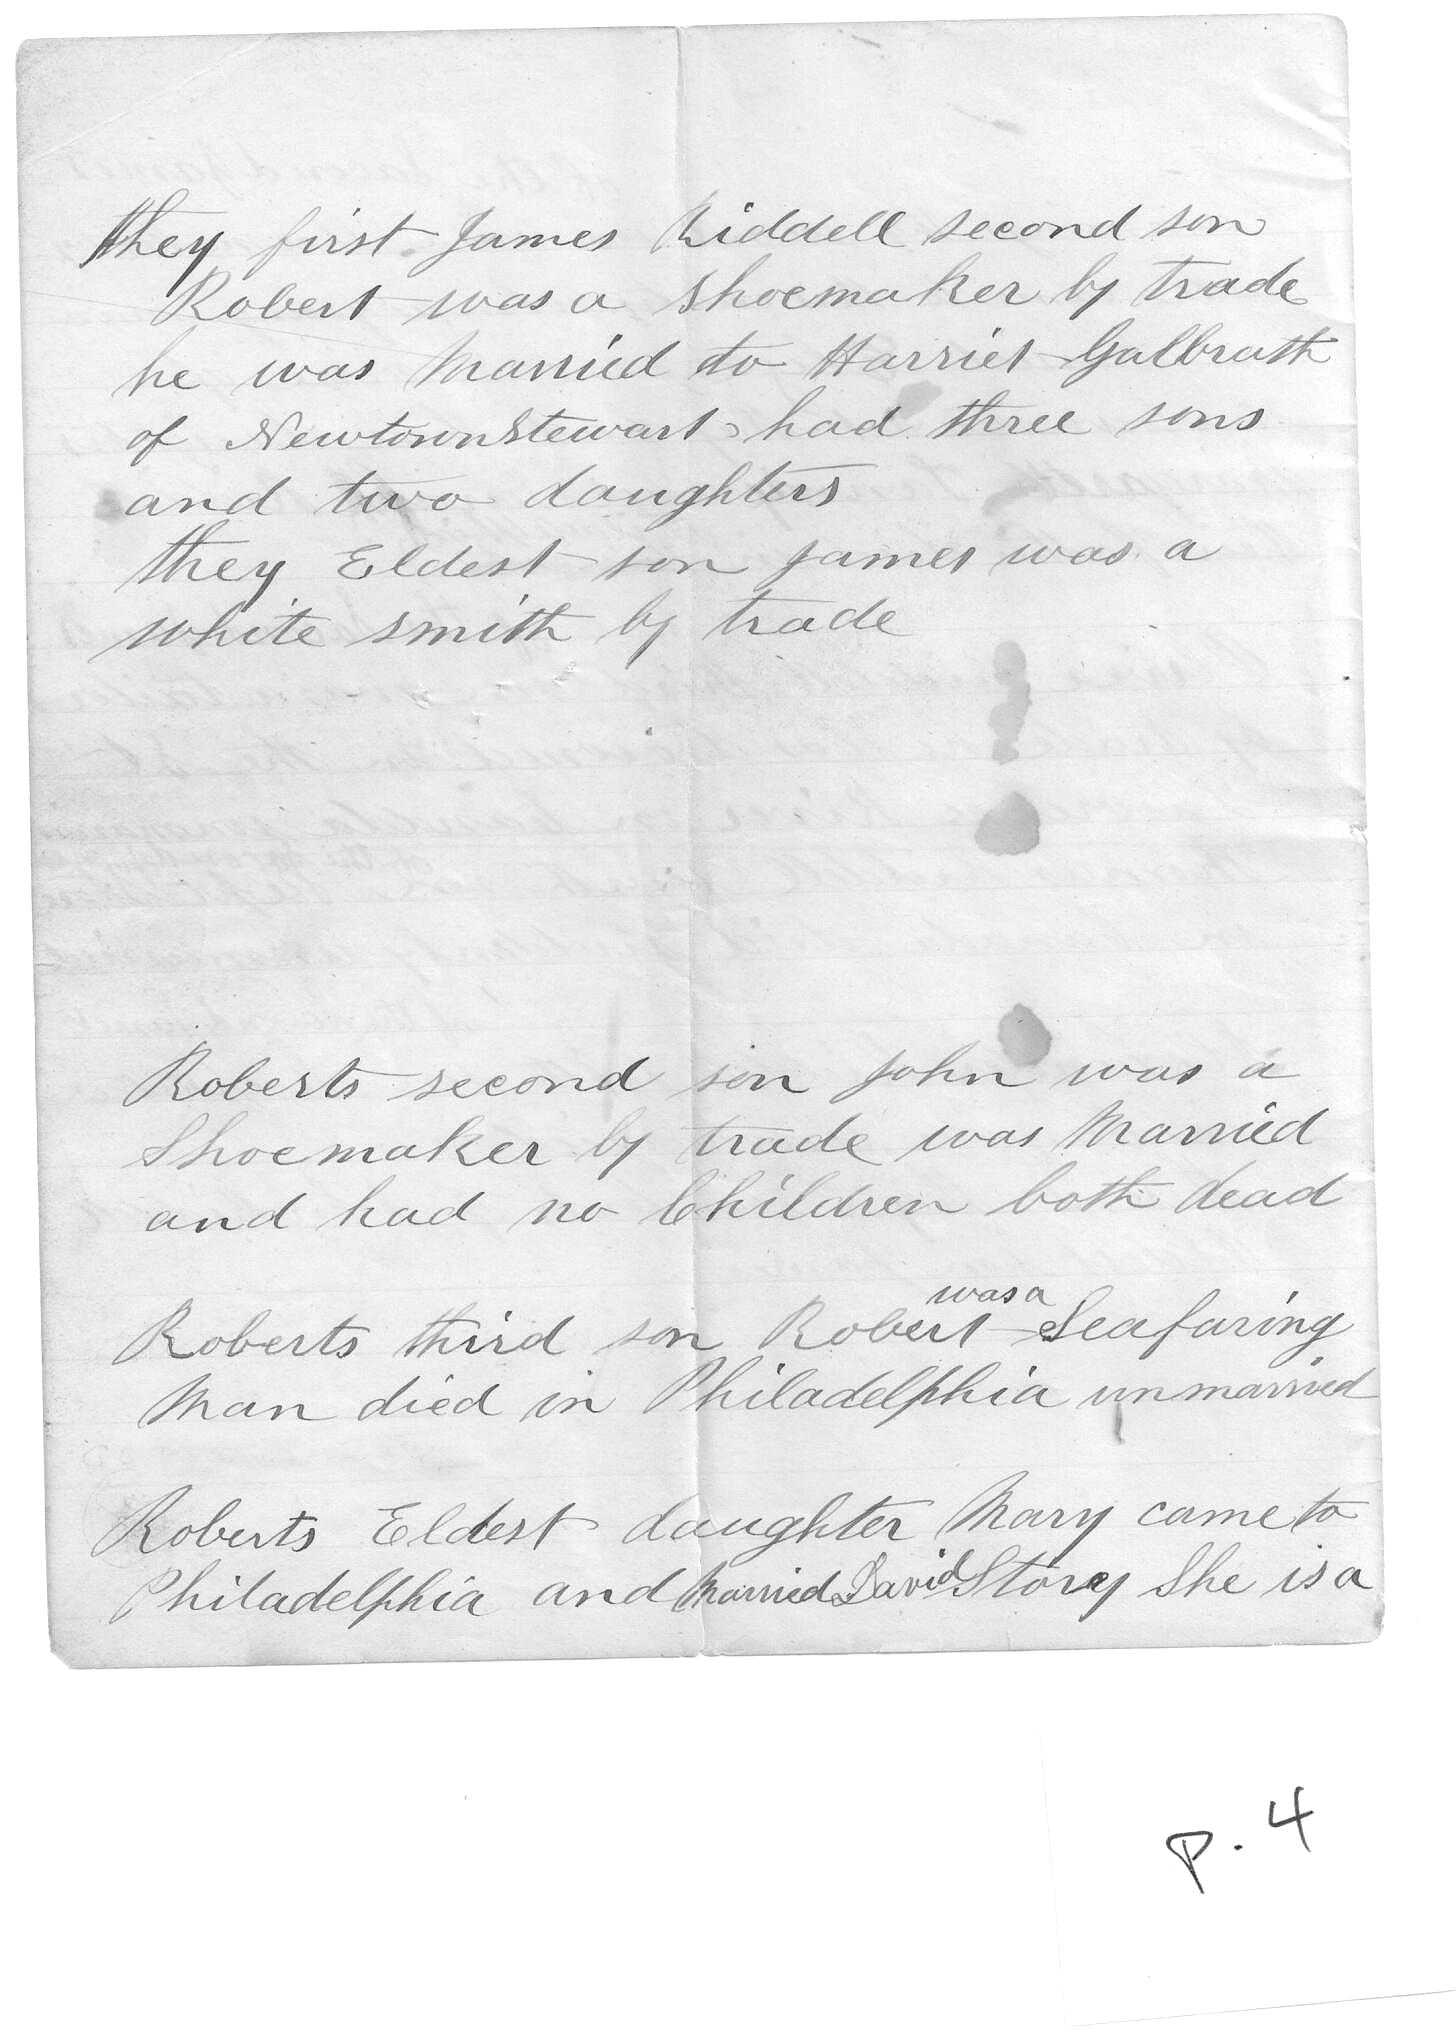 they first James Riddell second son
Robert was a shoemaker by trade
he was Married to Harriet Galbrath
of NewtownStewart had three sons
and two daughters
they Eldest son James was a
white smith by trade
Roberts second son John was a
Shoemaker by trade was Married
and had no Children both dead
Roberts third son Robert was a Seafaring
Man died in Philadelphia unmarried
Roberts Eldest daughter Mary came to
Philadelphia and Married David Story She is a
p. 4